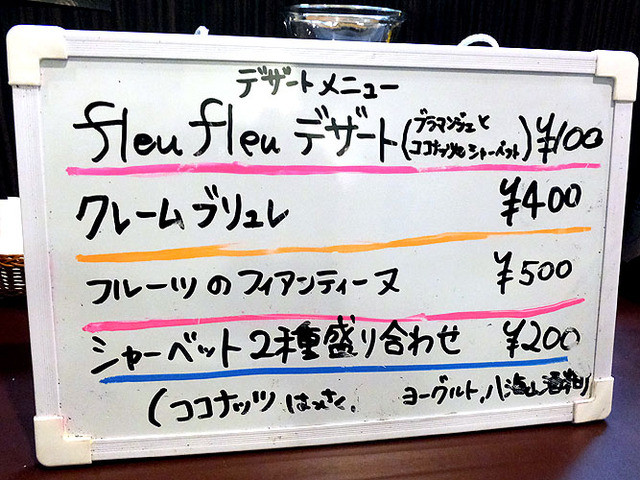 デザートメニュー
fleu fleu デザート(ブラマンジェと ココナッツのシャーベット) ¥100
クレームブリュレ ¥400
フルーツのフィアンティーヌ ¥500
シャーベット2種盛り合わせ ¥200
(ココナッツ はっさく, ヨーグルト, 八海山酒粕)